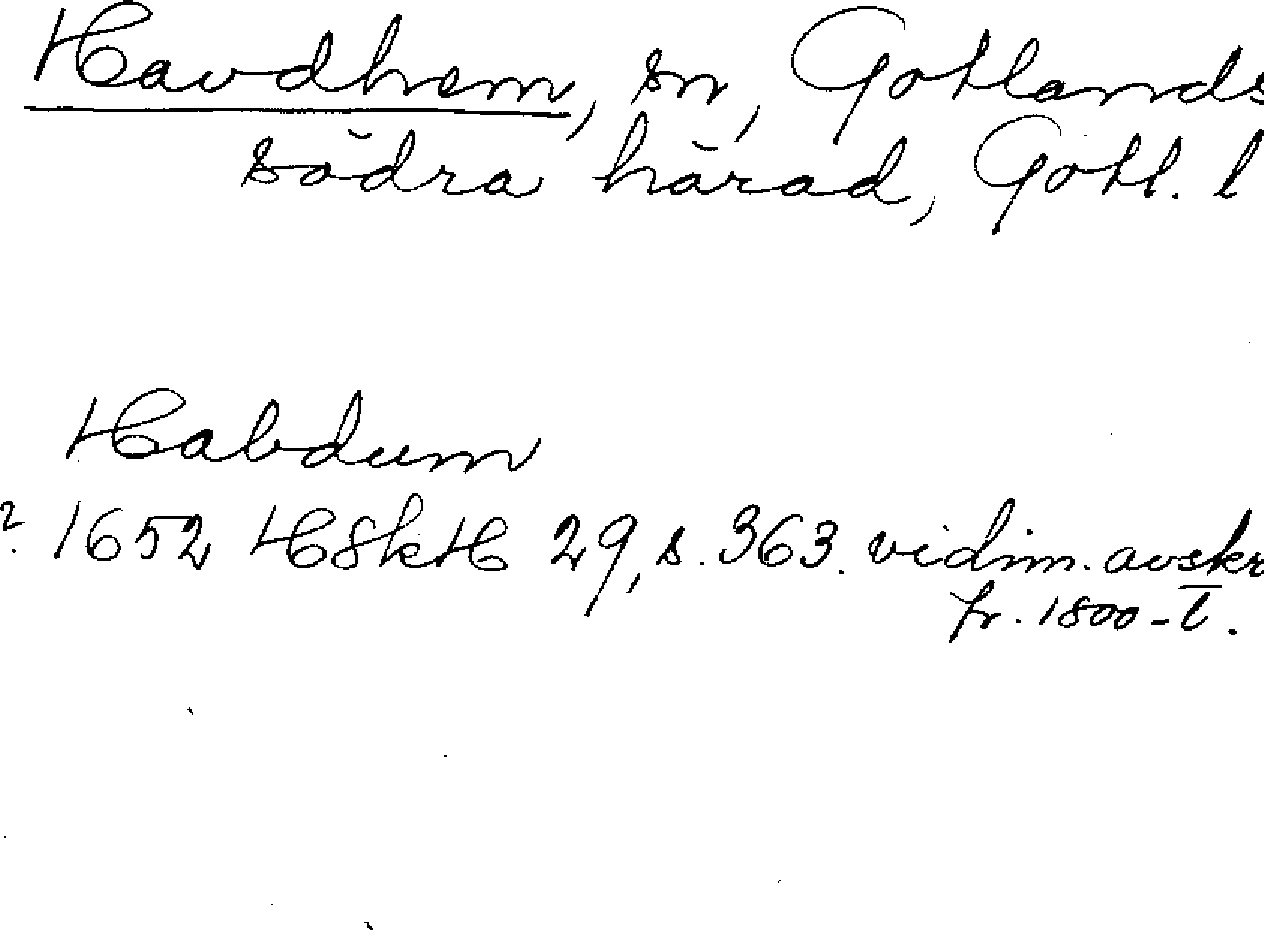 Havdhem, sn, Gotlands
södra härad, Gotl. l
Habdum
? 1652 HSkH 29, s. 363. vidim. avskr
fr. 1800-t.